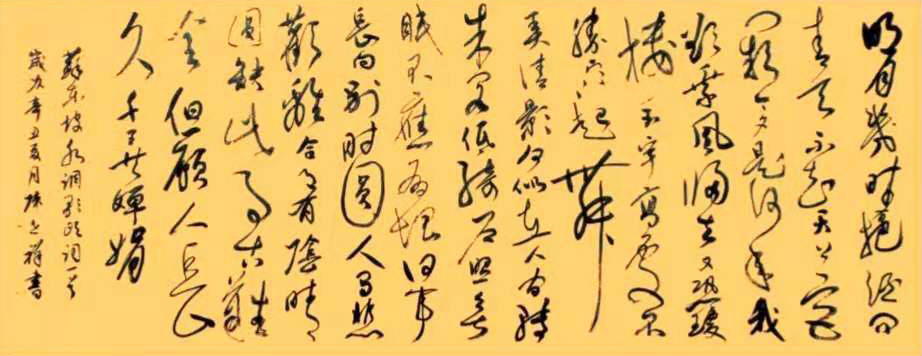 明月幾时把酒问
青天不知天上宫
阙今夕是何年我
欲乘风归去又恐瓊
楼玉宇高處不
勝寒起舞
弄清影何似在人间转
朱阁低绮户照无
眠不應有恨何事
長向别时圆人有悲
歡離合月有陰晴
圆缺此事古難
全但願人長
久千里共嬋娟
蘇東坡水调歌頭词一首
歲次辛丑夏月祥書